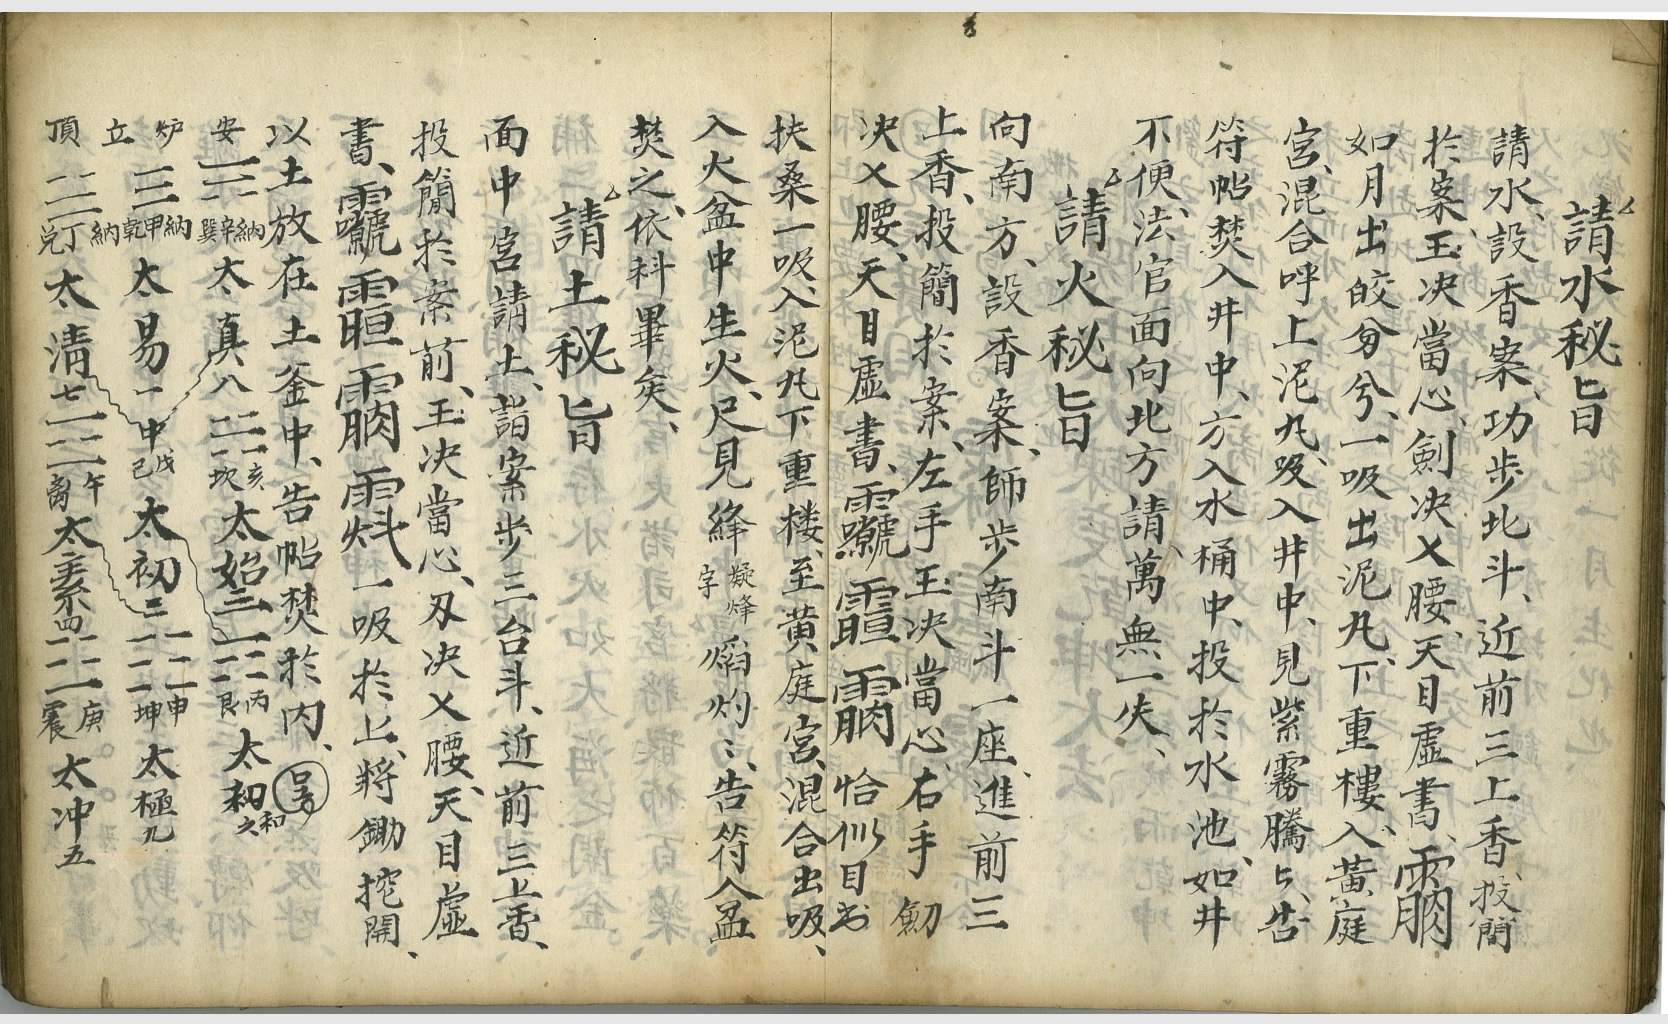 請水秘旨
請水、設香案、功步北斗、近前三上香、投簡
於案、玉决當心、劍决乂腰、天目虛書、𩆜
如月出皎兮兮、一吸出泥丸、下重樓、入黃庭
宮、混合呼上泥丸、吸入井中、見紫霧騰匕、告
符帖焚入井中、方入水桶中、投於水池、如井
不便、法官面向北方請、萬無一失、
請火秘旨
向南方、設香案、師步南斗一座、進前三
上香、投簡於案、左手玉决當心、右手劍
决乂腰、天目虛書、恰似目出
扶桑一吸、入泥丸下重楼、至黃庭宮、混合出吸、
入火盆中生火、尺見絳凝烽字焰灼灼、告符入盆
焚之、依科畢矣、
請土秘旨
面中宮請土、詣案步三台斗、近前三上香、
投簡於案前、玉决當心、刄决乂腰、天目虛
書、一吸於上、將鋤挖開、
以土放在土釜中、告帖焚於內、
安 ☴ 納辛巽 太真八 ☵ 亥坎 太始三 ☶ 丙艮 太初之和
炉立 ☰ 納甲乾 太易一 中戊己 太初二 ☷ 申坤 太極九
頂 ☱ 納丁兌 太清七 ☲ 午离 太素四 ☳ 庚震 太冲五